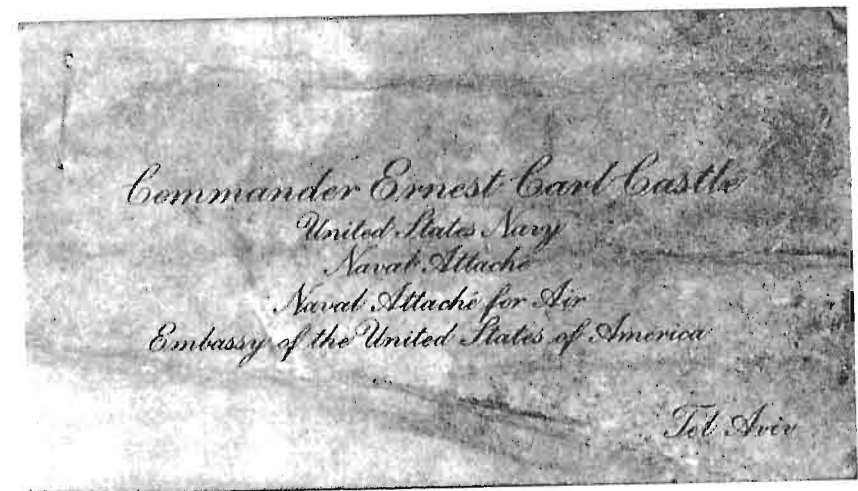 Commander Ernest Carl Castle
United States Navy
Naval Attaché
Naval Attaché for Air
Embassy of the United States of America
Tel Aviv